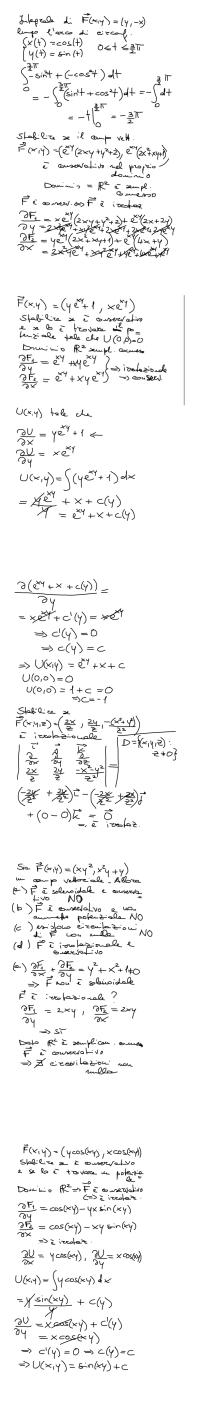 Integrale di F(x,y)=(y,-x)
lungo l'arco di circonf.
{x(t)=cos(t)   0≤t≤3/2π
{y(t)=sin(t)
∫₀^{3/2π} -sin²t+(-cos²t) dt
= -∫₀^{3/2π}(sin²t+cos²t)dt = -∫₀^{3/2π} dt
= -t|₀^{3/2π} = -3/2π
Stabilire se il campo vett.
F(x,y)=(e^{xy}(2xy+y²+2), e^{xy}(2x²+xy+1))
è conservativo nel proprio
dominio
Dominio = ℝ² è sempl.
connesso
F è conserv. ⇔ F è irrotaz
∂F₁/∂y = xe^{xy}(2xy+y²+2)+e^{xy}(2x+2y)
∂F₂/∂x = ye^{xy}(2x²+xy+1)+e^{xy}(4x+y)
F(x,y)=(ye^{xy}+1, xe^{xy})
Stabilire se è conservativo
e se lo è trovare il po=
tenziale tale che U(0,0)=0
Dominio ℝ² sempl. connesso
∂F₁/∂y = e^{xy}+xye^{xy} } ⇒ irrotazionale
∂F₂/∂x = e^{xy}+xye^{xy} } ⇒ conserv
U(x,y) tale che
∂U/∂x = ye^{xy}+1 ←
∂U/∂y = xe^{xy}
U(x,y)=∫(ye^{xy}+1)dx
= ye^{xy}/y + x + c(y)
= e^{xy}+x+c(y)
∂(e^{xy}+x+c(y))/∂y =
= xe^{xy}+c'(y) = xe^{xy}
⇒ c'(y)=0
⇒ c(y)=c
⇒ U(x,y)=e^{xy}+x+c
U(0,0)=0
U(0,0)=1+c=0
⇒ c=-1
Stabilire se
F(x,y,z)=(2x/z, 2y/z, -(x²+y²)/z²)
è irrotazionale
D={(x,y,z): z≠0}
| i j k |
| ∂/∂x ∂/∂y ∂/∂z |
| 2x/z 2y/z -x²-y²/z² | =
(-2y/z²+2y/z²)i-(-2x/z²+2x/z²)j
+(0-0)k = 0
⇒ è irrotaz.
Sia F(x,y)=(xy², x²y+y)
un campo vettoriale. Allora
(a) F è solenoidale e conserva
tivo NO
(b) F è conservativo e non
ammette potenziale NO
(c) esistono circuitazioni
di F non nulle NO
(d) F è irrotazionale e
conservativo
(a) ∂F₁/∂x+∂F₂/∂y=y²+x²+1≠0
⇒ F non è solenoidale
F è irrotazionale?
∂F₁/∂y = 2xy, ∂F₂/∂x = 2xy
⇒ SÌ
Dato ℝ² è semplicem. connesso
F è conservativo
⇒ ∄ circuitazioni non
nulle
F(x,y)=(ycos(xy), xcos(xy))
Stabilire se è conservativo
e se lo è trovare un potenzia
le
Dominio ℝ² ⇒ F è conservativo
⇔ è irrotaz.
∂F₁/∂y = cos(xy)-yxsin(xy)
∂F₂/∂x = cos(xy)-xysin(xy)
⇒ è irrotaz.
∂U/∂x = ycos(xy), ∂U/∂y = xcos(xy)
U(x,y)=∫ycos(xy)dx
= ysin(xy)/y + c(y)
∂U/∂y = xcos(xy)+c'(y)
= xcos(xy)
⇒ c'(y)=0 ⇒ c(y)=c
⇒ U(x,y)=sin(xy)+c